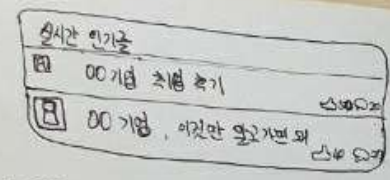 실시간 인기글
00기업 취업 후기
00기업, 이것만 알고가면 돼